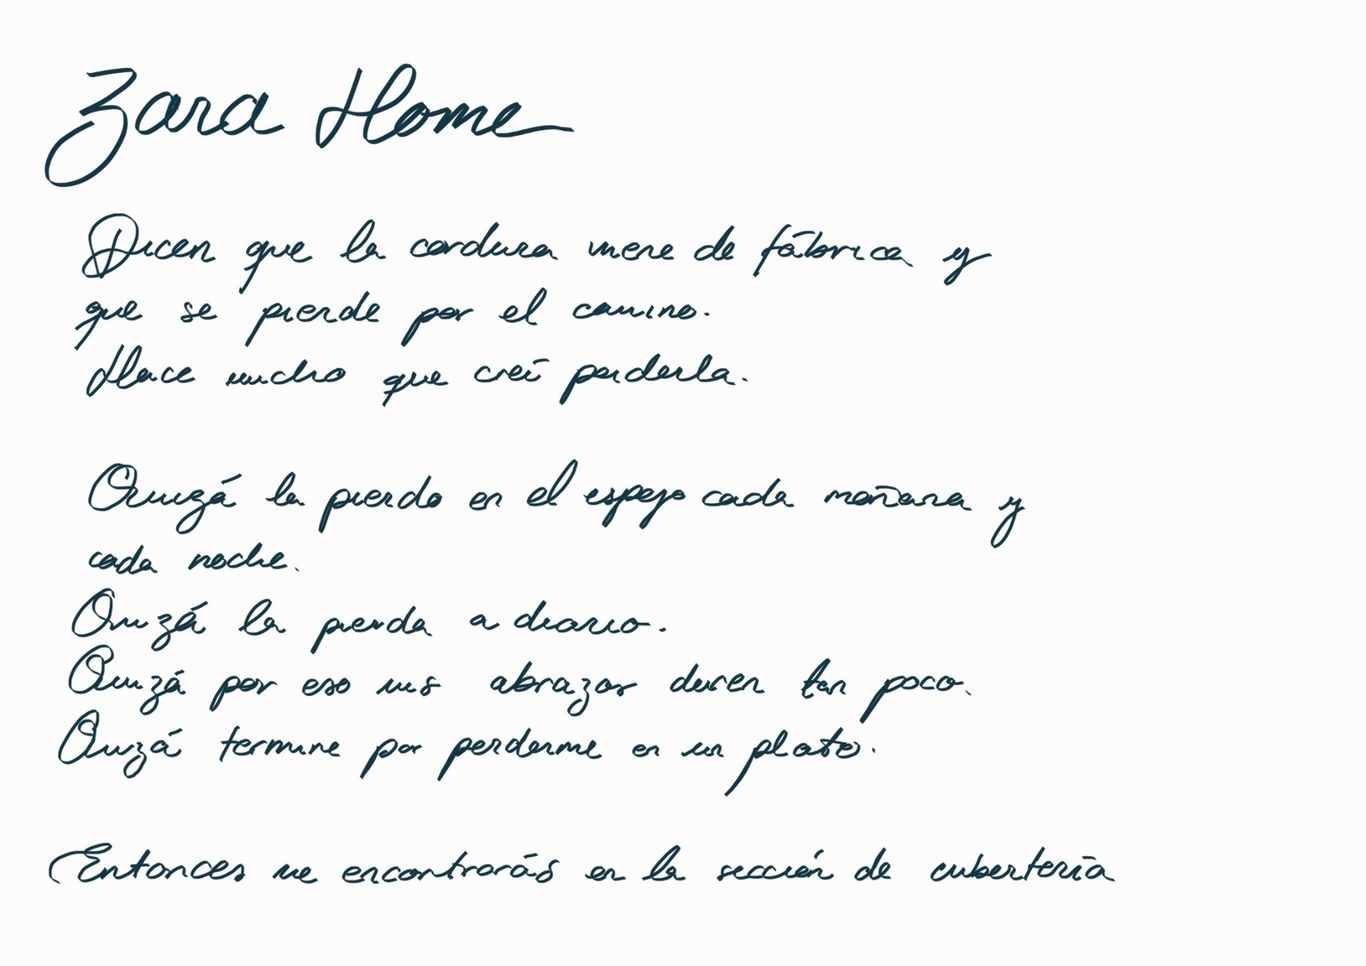 Zara Home
Dicen que la cordura viene de fábrica y
que se pierde por el camino.
Hace mucho que creí perderla.
Quizá la pierdo en el espejo cada mañana y
cada noche.
Quizá la pierda a diario.
Quizá por eso mis abrazos duren tan poco.
Quizá termine por perderme en un plato.
Entonces me encontrarás en la sección de cubertería